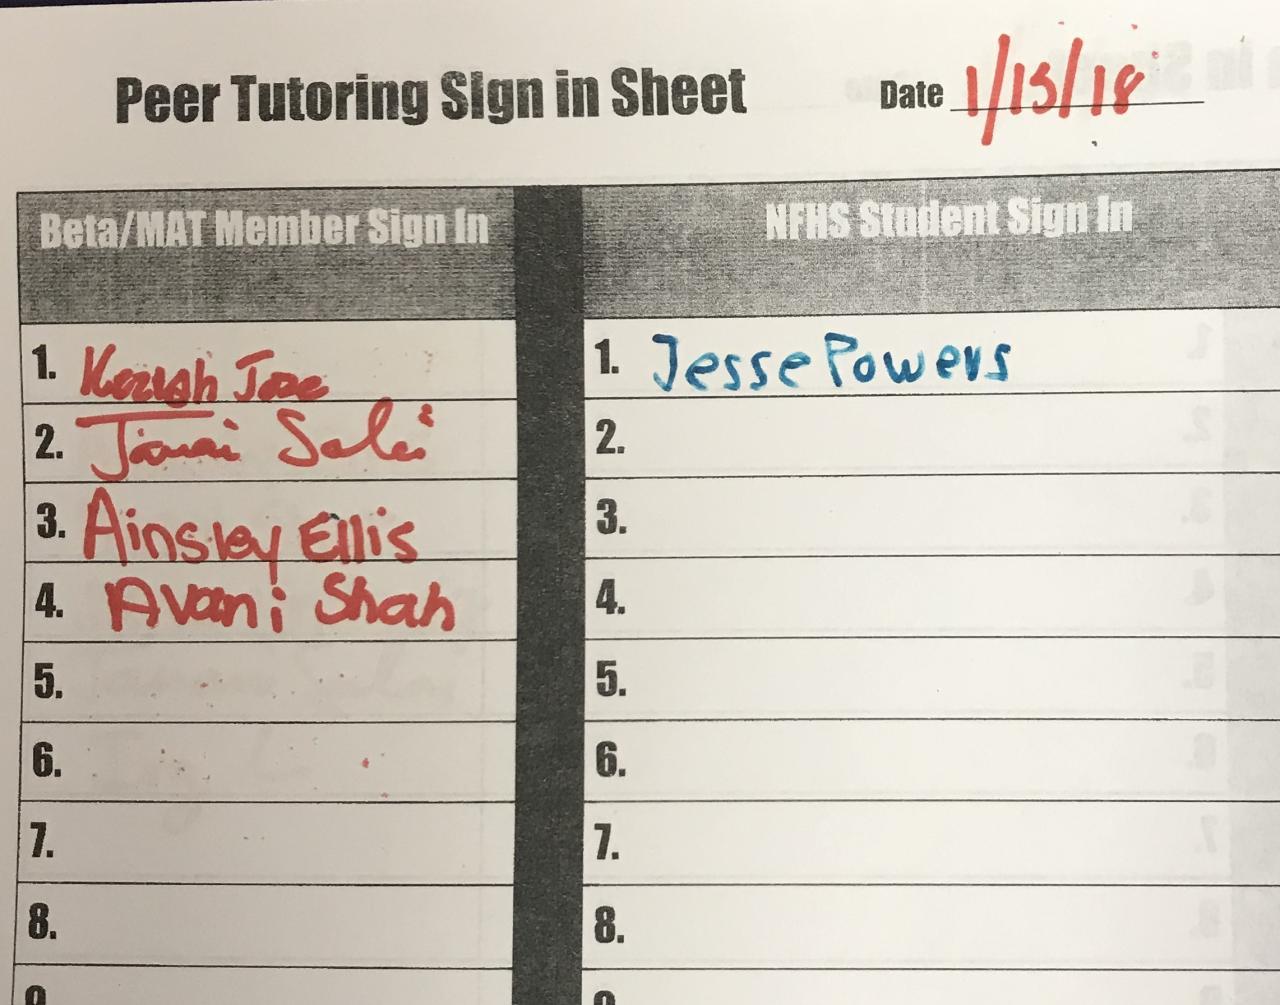 Peer Tutoring Sign in Sheet Date 1/15/18
Beta/MAT Member Sign In NFHS Student Sign In
1. 1. Jesse Powers
2. 2.
3. Ainsley Ellis 3.
4. Avani Shah 4.
5. 5.
6. 6.
7. 7.
8. 8.